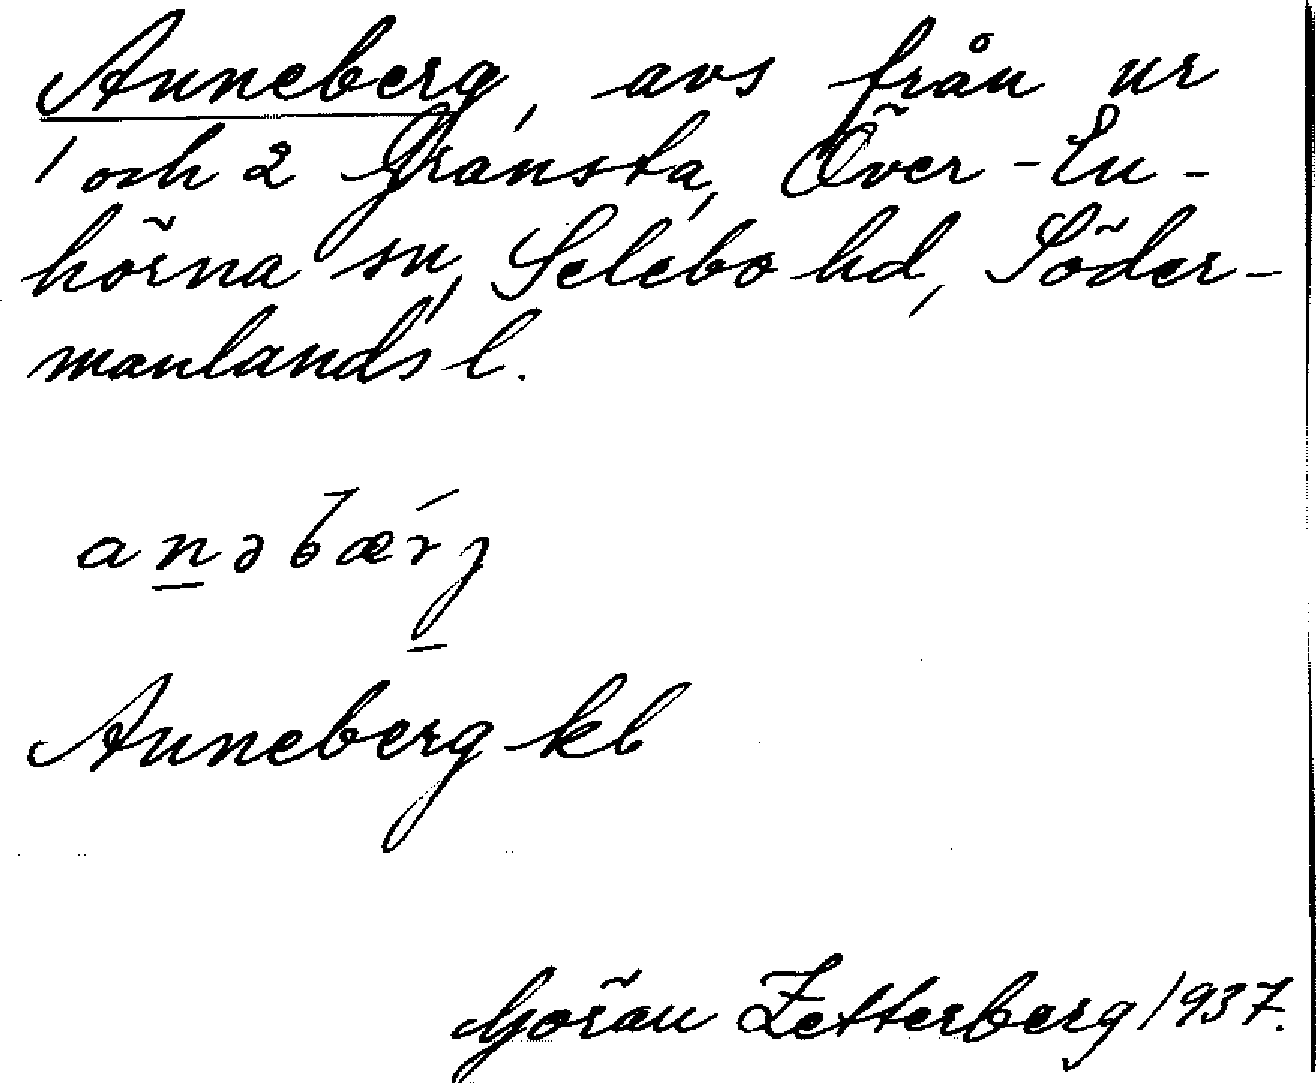 Anneberg, avs från nr
1 och 2 Gransta, Över-En-
hörna sn, Selebo hd, Söder-
manlands l.
anəbærj
Anneberg kb
Göran Zetterberg 1937.